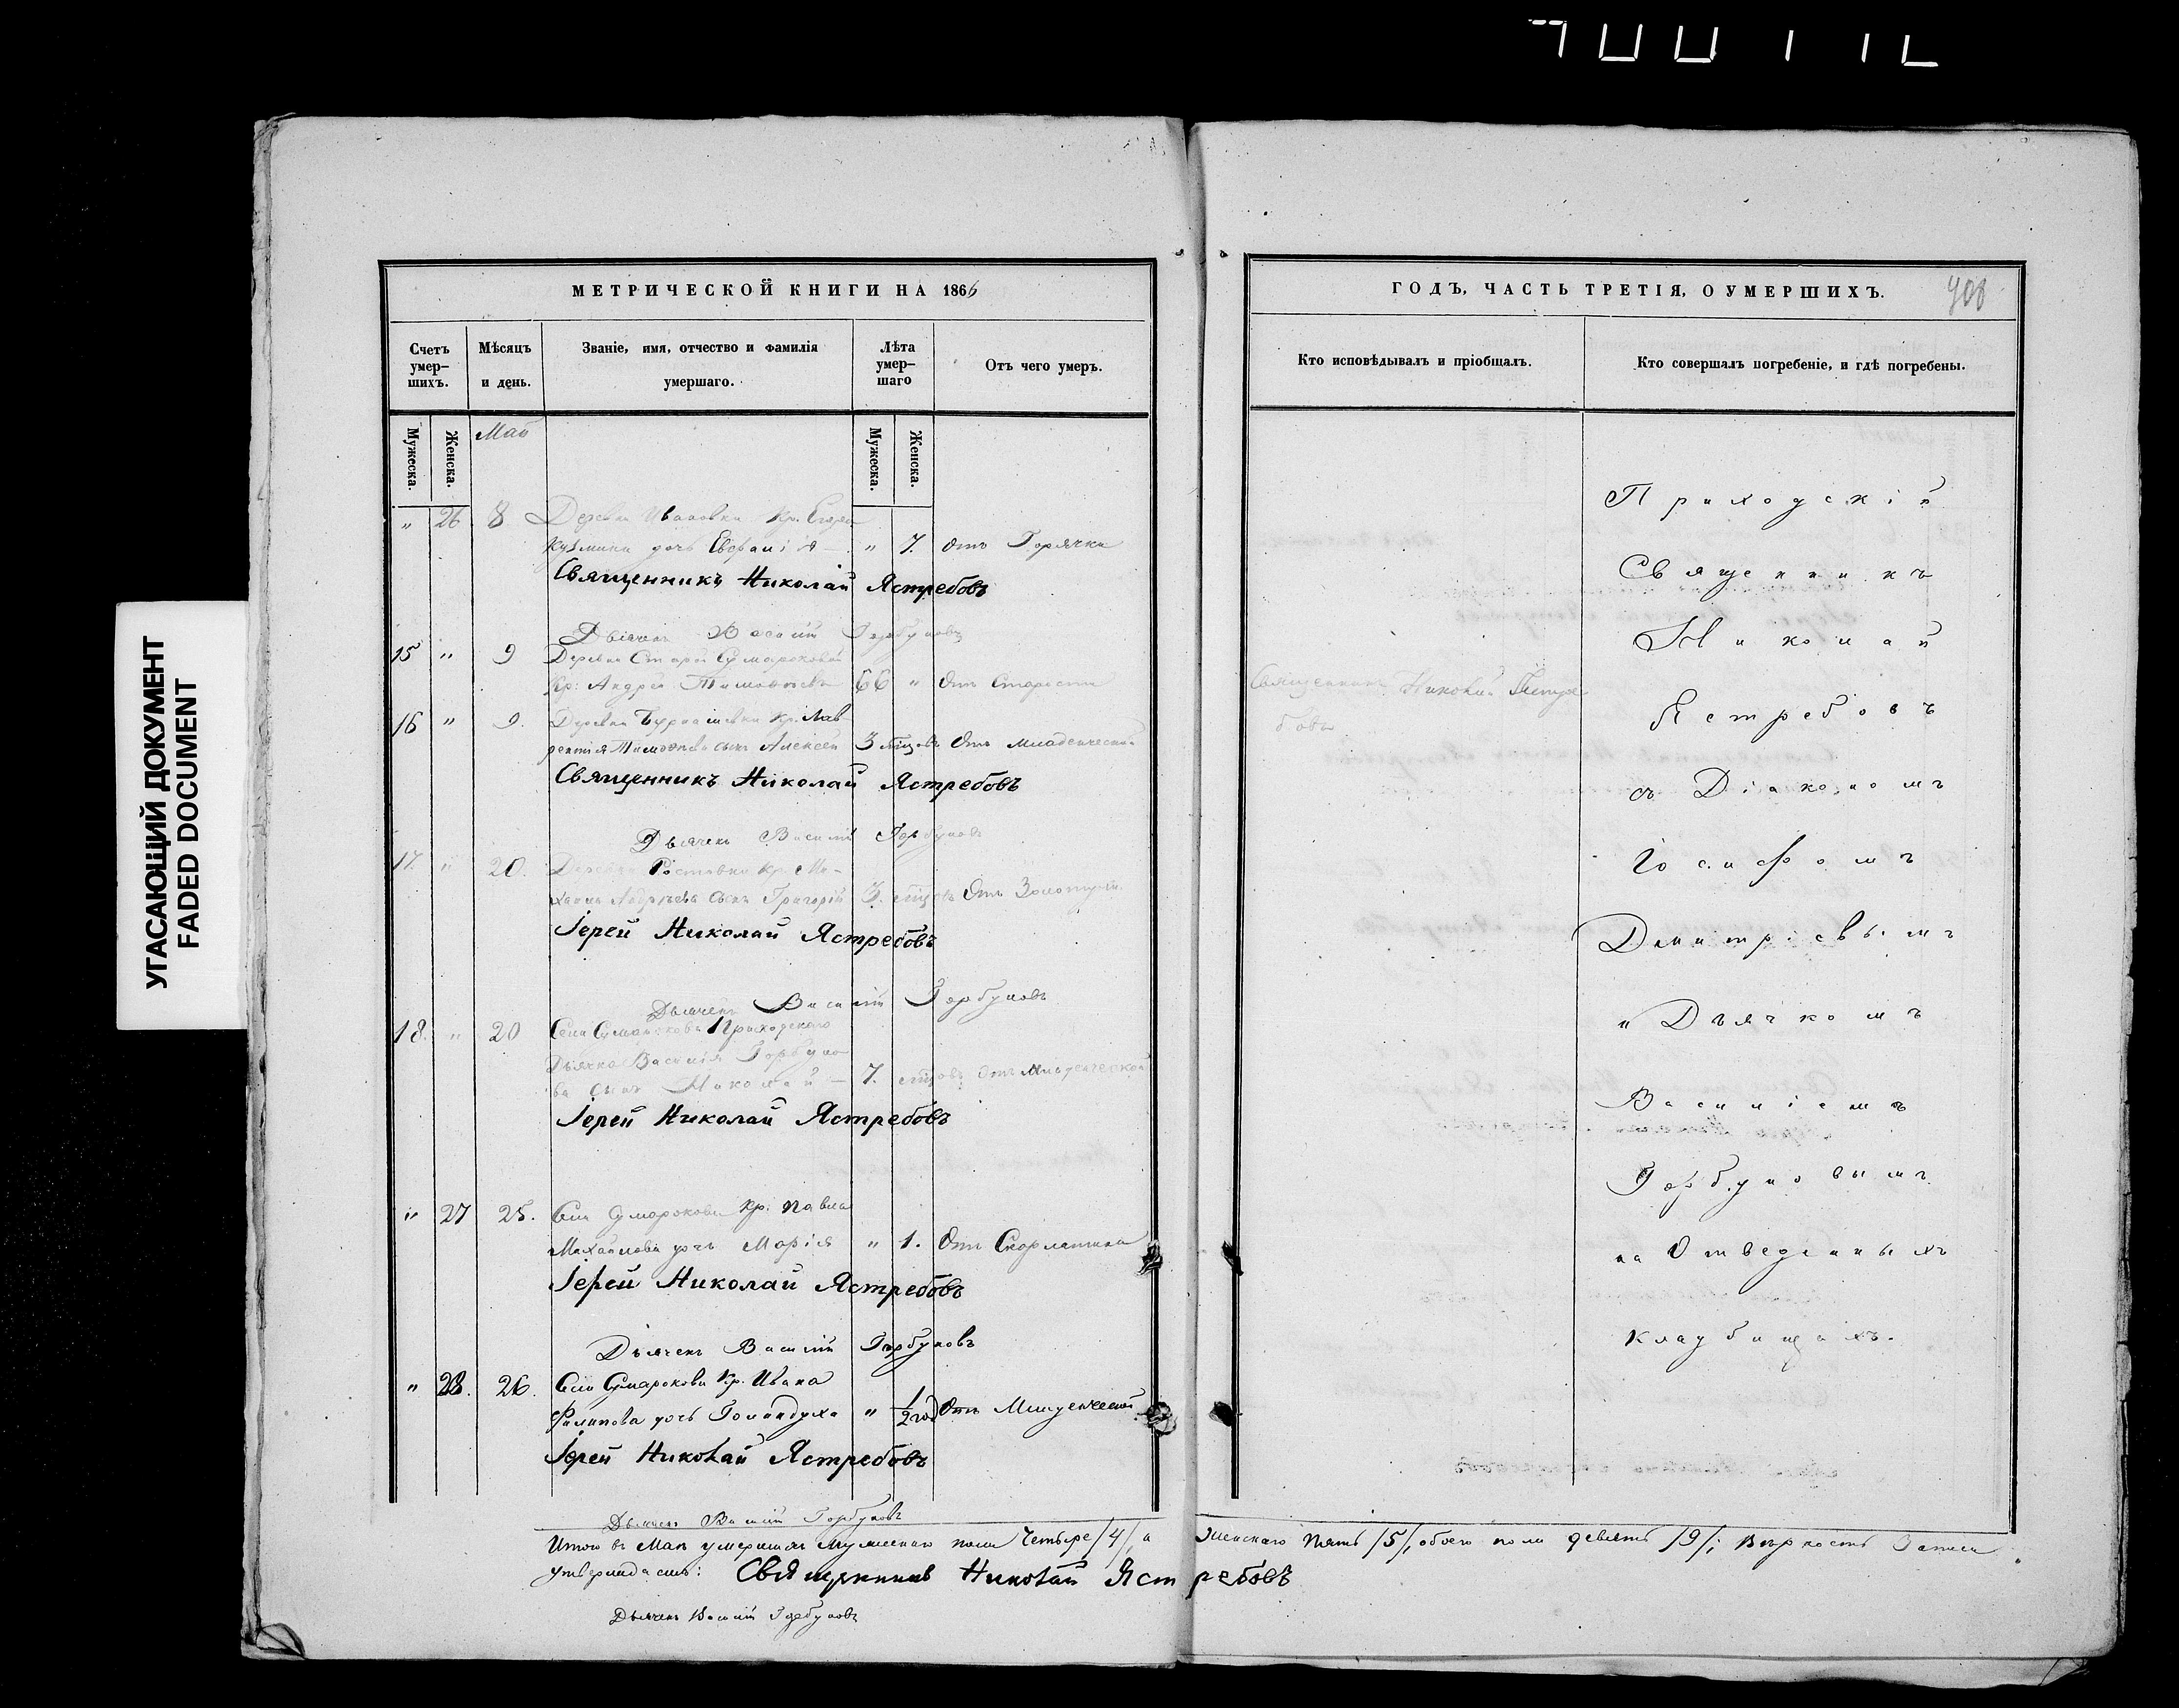 УГАСАЮЩИЙ ДОКУМЕНТ
FADED DOCUMENT
МЕТРИЧЕСКОЙ КНИГИ НА 1866
Счетъ умер-шихъ.
Мѣсяцъ и день.
Званіе, имя, отчество и фамилія умершаго.
Лѣта умер-шаго
Отъ чего умеръ.
Мужеска.
Женска.
Май
Мужеска.
Женска.
" 26 8 Деревни Ивановки Кр. Егора
Кузмина дочь Евфимія " 7. Отъ Горячки
Священникъ Николай Ястребовъ
Дьячекъ Василій Горбуновъ
15 " 9 Деревни Старой Сумароковой
Кр: Андрей Тимофѣевъ 66 " Отъ Старости
16 " 9. Деревни Кр. Лав-
рентія Тимофѣева сынъ Алексей 3 мѣсцовъ Отъ Младенческой
Священникъ Николай Ястребовъ
Дьячекъ Василій Горбуновъ
17. " 20. Деревни Ростовки Кр. Ми-
хаила Андреева сынъ Григорій 3. мѣсцовъ Отъ Золотухи
Іерей Николай Ястребовъ
Дьячекъ Василій Горбуновъ
18. " 20 Села Сумарокова Приходскаго
Дьячка Василія Горбуно-
ва сынъ Николай — 7. мѣсцовъ Отъ Младенческой
Іерей Николай Ястребовъ
" 27 25. Села Сумарокова Кр: Павла
Михайлова дочь Марія " 1. Отъ Скорлатина
Іерей Николай Ястребовъ
Дьячекъ Василій Горбуновъ
" 28. 26. Села Сумарокова Кр. Ивана
Филипова дочь " 1/2 год Отъ Младенческой
Іерей Николай Ястребовъ
Дьячекъ Василій Горбуновъ
Итого въ Маѣ умершихъ мужескаго пола Четыре /4/, а женскаго пять /5/, обоего пола девять /9/; Вѣрность Записи
утверждаемъ: Священникъ Николай Ястребовъ
Дьячекъ Василій Горбуновъ
ГОДЪ, ЧАСТЬ ТРЕТІЯ, О УМЕРШИХЪ.
908
Кто исповѣдывалъ и пріобщалъ.
Кто совершалъ погребеніе, и гдѣ погребены.
Священникъ Николай Ястре
бовъ
Приходскій
Священникъ
Николай
Ястребовъ
съ Діакономъ
Іосифомъ
Димитріевымъ
и Дьячкомъ
Василіемъ
Горбуновымъ
на Отведенныхъ
кладбищахъ.